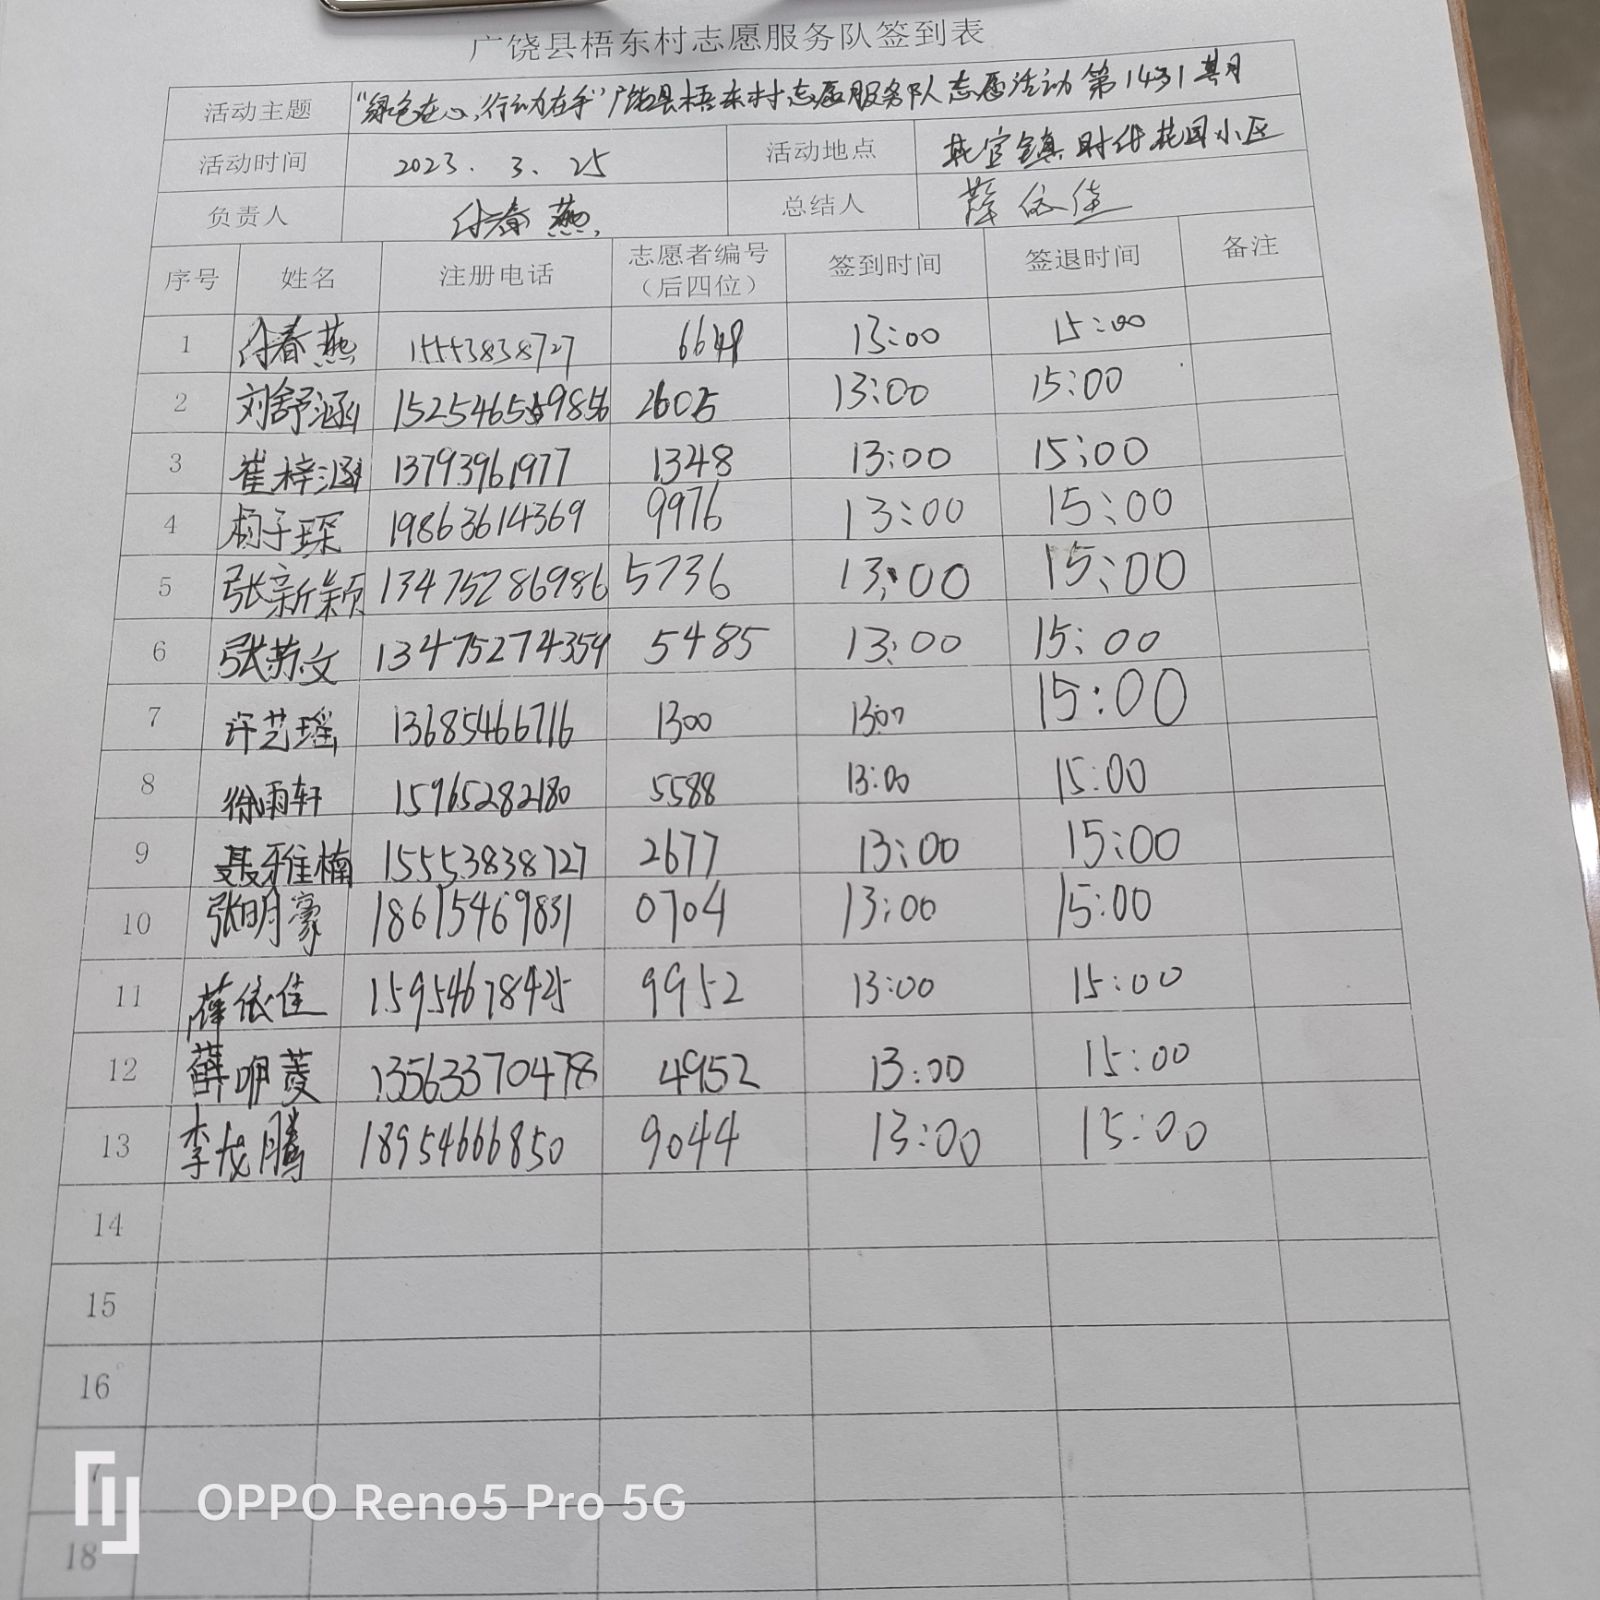 广饶县梧东村志愿服务队签到表
活动主题 "绿色在心,行动在手"广饶县梧东村志愿服务队志愿活动第1431期
活动时间 2023.3.25 活动地点 花官镇时代花园小区
负责人 付春燕 总结人 薛依佳
序号 姓名 注册电话 志愿者编号(后四位) 签到时间 签退时间 备注
1 付春燕 15553838727 6649 13:00 15:00
2 刘舒涵 2605 13:00 15:00
3 崔梓涵 13793961977 1348 13:00 15:00
4 杨子琛 19863614369 9976 13:00 15:00
5 张新颖 13475286986 5736 13:00 15:00
6 张芳文 13475274359 5485 13:00 15:00
7 许艺瑶 13685466716 1300 13:00 15:00
8 徐雨轩 15965282180 5588 13:00 15:00
9 聂雅楠 15553838727 2677 13:00 15:00
10 张明豪 18615469831 0704 13:00 15:00
11 薛依佳 15954678425 9952 13:00 15:00
12 薛明菱 13563370478 4952 13:00 15:00
13 李成腾 18954666850 9044 13:00 15:00
14
15
16
18
OPPO Reno5 Pro 5G